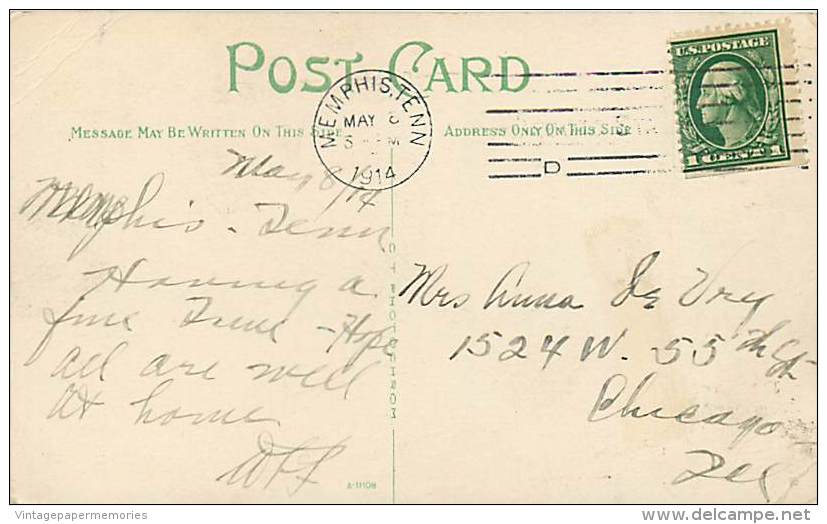 POST CARD
MESSAGE MAY BE WRITTEN ON THIS SIDE
ADDRESS ONLY ON THIS SIDE
MEMPHIS, TENN
MAY 8
M
1914
D
U.S. POSTAGE
1 CENT 1
May 8/14
Memphis - Tenn
Having a
fine Time - Hope
all are well
at home
Mrs Anna De Vry
1524 W. 55th St
Chicago
Ill
A-11108
Vintagepapermemories
delcampe.net